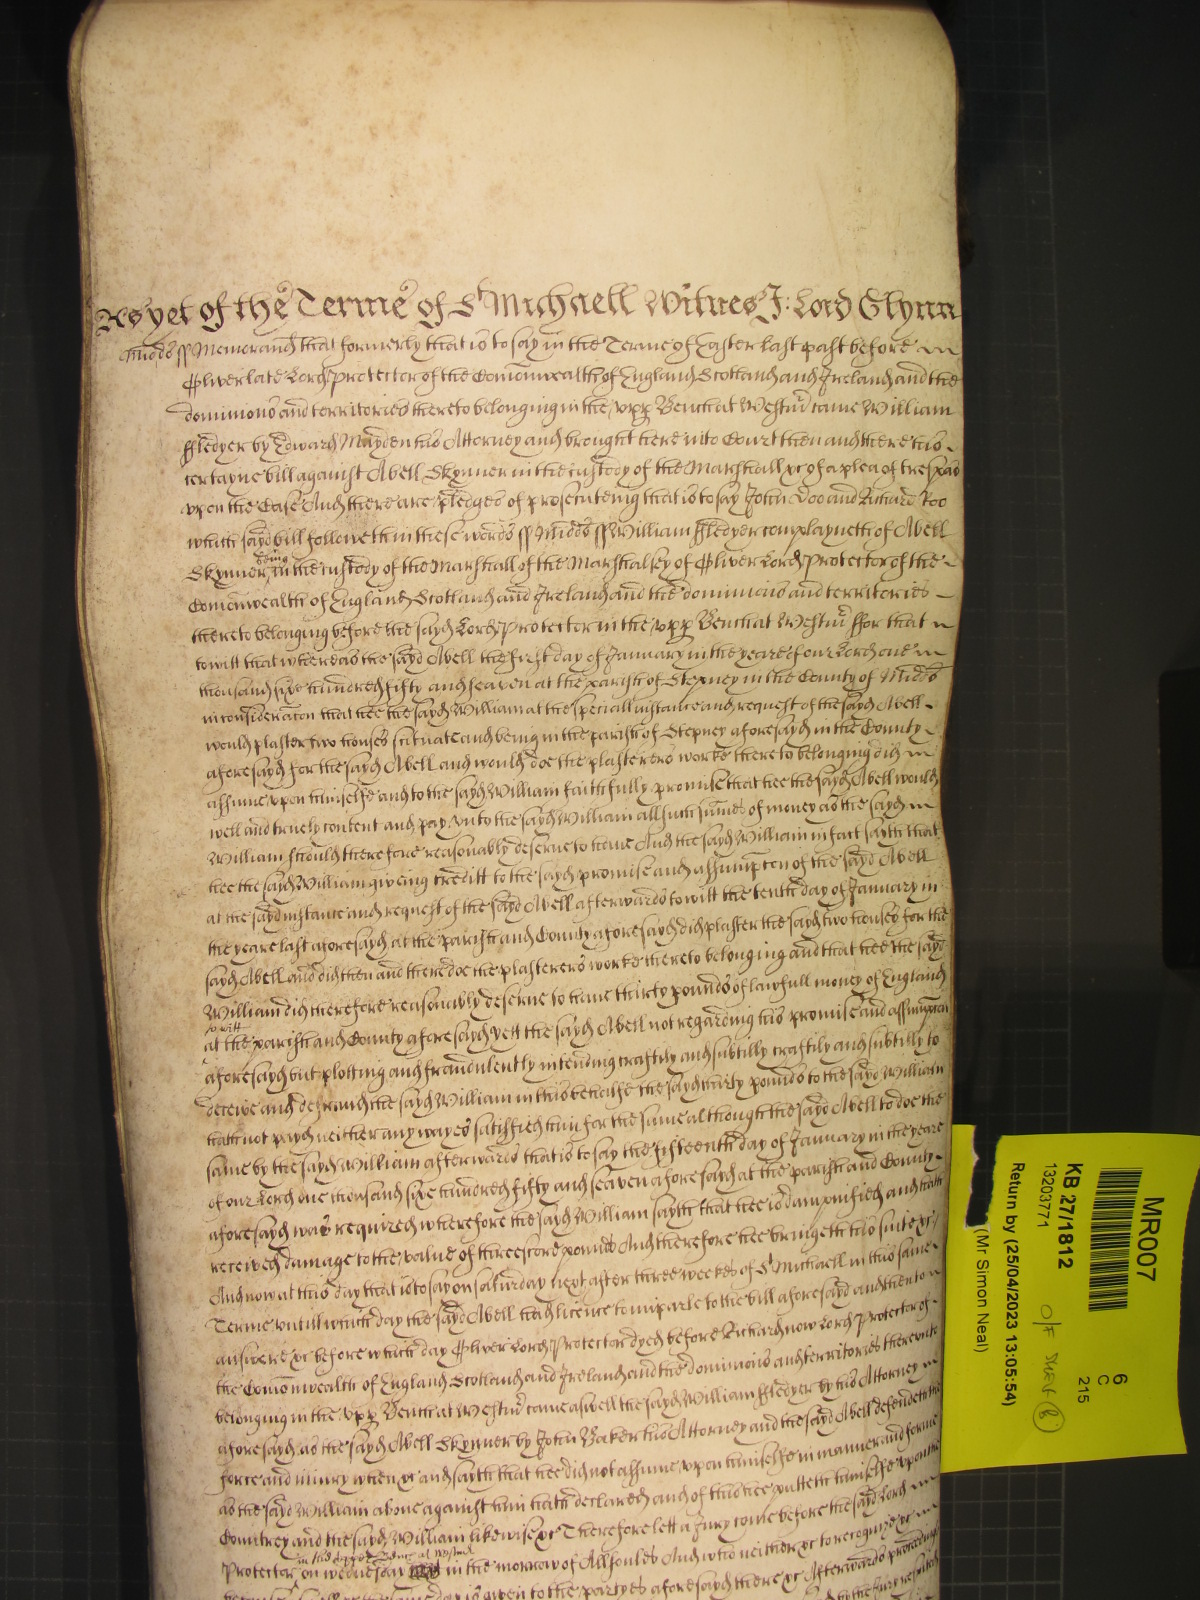 As yet of the Terme of St Michaell Witnes J: Lord Glynn
Midds ss Memorand that formerly that is to say in the Terme of Easter last past before
Oliver late Lord Protector of the Comonwealth of England Scotland and Ireland and the
dominions and territories thereto belonging in the upp Bench at Westmr came William
ffledger by Edward Mayden his Attorney and brought here into Court then and there his
certayne bill against Abell Skynner in the custody of the Marshall &c of a plea of trespas
upon the Case And there are pledges of prosecuteing that is to say John Doo and Richard Roo
which sayd bill followeth in these words ss Midds ss William ffledger complayneth of Abell
Skynner being in the custody of the Marshall of the Marshalsey of Oliver Lord Protector of the
Comonwealth of England Scotland and Ireland and the dominions and territories
thereto belonging before the sayd Lord Protector in the upp Bench at Westmr ffor that
to witt that whereas the sayd Abell the first day of January in the yeare of our Lord one
thousand sixe hundred fifty and seaven at the parish of Stepney in the County of Midds
in consideracon that hee the sayd William at the speciall instance and request of the sayd Abell
would plaster two houses scituate and being in the parish of Stepney aforesayd in the County
aforesayd for the sayd Abell and would doe the plasterers worke thereto belonging did
assume upon himselfe and to the sayd William faithfully promise that hee the sayd Abell would
well and truely content and pay unto the sayd William all such sumes of money as the sayd
William should therefore reasonably deserve to have And the sayd William in fact sayth that
hee the sayd William giveing creditt to the sayd promise and assumpcon of the sayd Abell
at the sayd instance and request of the sayd Abell afterwards to witt the tenth day of January in
the yeare last aforesayd at the parish and County aforesayd did plaster the sayd two houses for the
sayd Abell and did then and there doe the plasterers worke thereto belonging and that hee the sayd
William did therefore reasonably deserve to have thirty pounds of lawfull money of England
to witt
at the parish and County aforesayd yett the sayd Abell not regarding his promise and assumpcon
aforesayd but plotting and fraudulently intending craftily and subtilly craftily and subtilly to
deceive and defraud the sayd William in this behalfe the sayd thirty pounds to the sayd William
hath not payd neither any wayes satisfied him for the same although the sayd Abell to doe the
same by the sayd William afterwards that is to say the fifteenth day of January in the yeare
of our Lord one thousand sixe hundred fifty and seaven aforesayd at the parish and County
aforesayd was required wherefore the sayd William sayth that hee is dampnified and hath
received damage to the value of threescore pounds And therefore hee bringeth his suite &c
And now at this day that is to say on saturday next after three weekes of St Michaell in this same
Terme untill which day the sayd Abell had licence to imparle to the bill aforesayd and then to
answere &c before which day Oliver Lord Protector dyed before Richard now Lord Protector of
the Comonwealth of England Scotland and Ireland and the dominions and territories thereunto
belonging in the upp Bench at Westmr came aswell the sayd William ffledger by his Attorney
aforesayd as the sayd Abell Skynner by John Baker his Attorney and the sayd Abell defendeth the
force and injury when &c and sayth that hee did not assume upon himselfe in manner and forme
as the sayd William above against him hath declared and of this hee putteth himselfe upon the
Countrey and the sayd William likewise &c Therefore lett a Jury come before the sayd Lord
Protector in the upper Bench at Westmr on wednesday in the morrow of All soules And who neither &c to recognize &c
same day is given to the partyes aforesayd there &c Afterwards
MR007
KB 27/1812
13203771
Return by (25/04/2023 13:05:54)
(Mr Simon Neal)
6
C
215